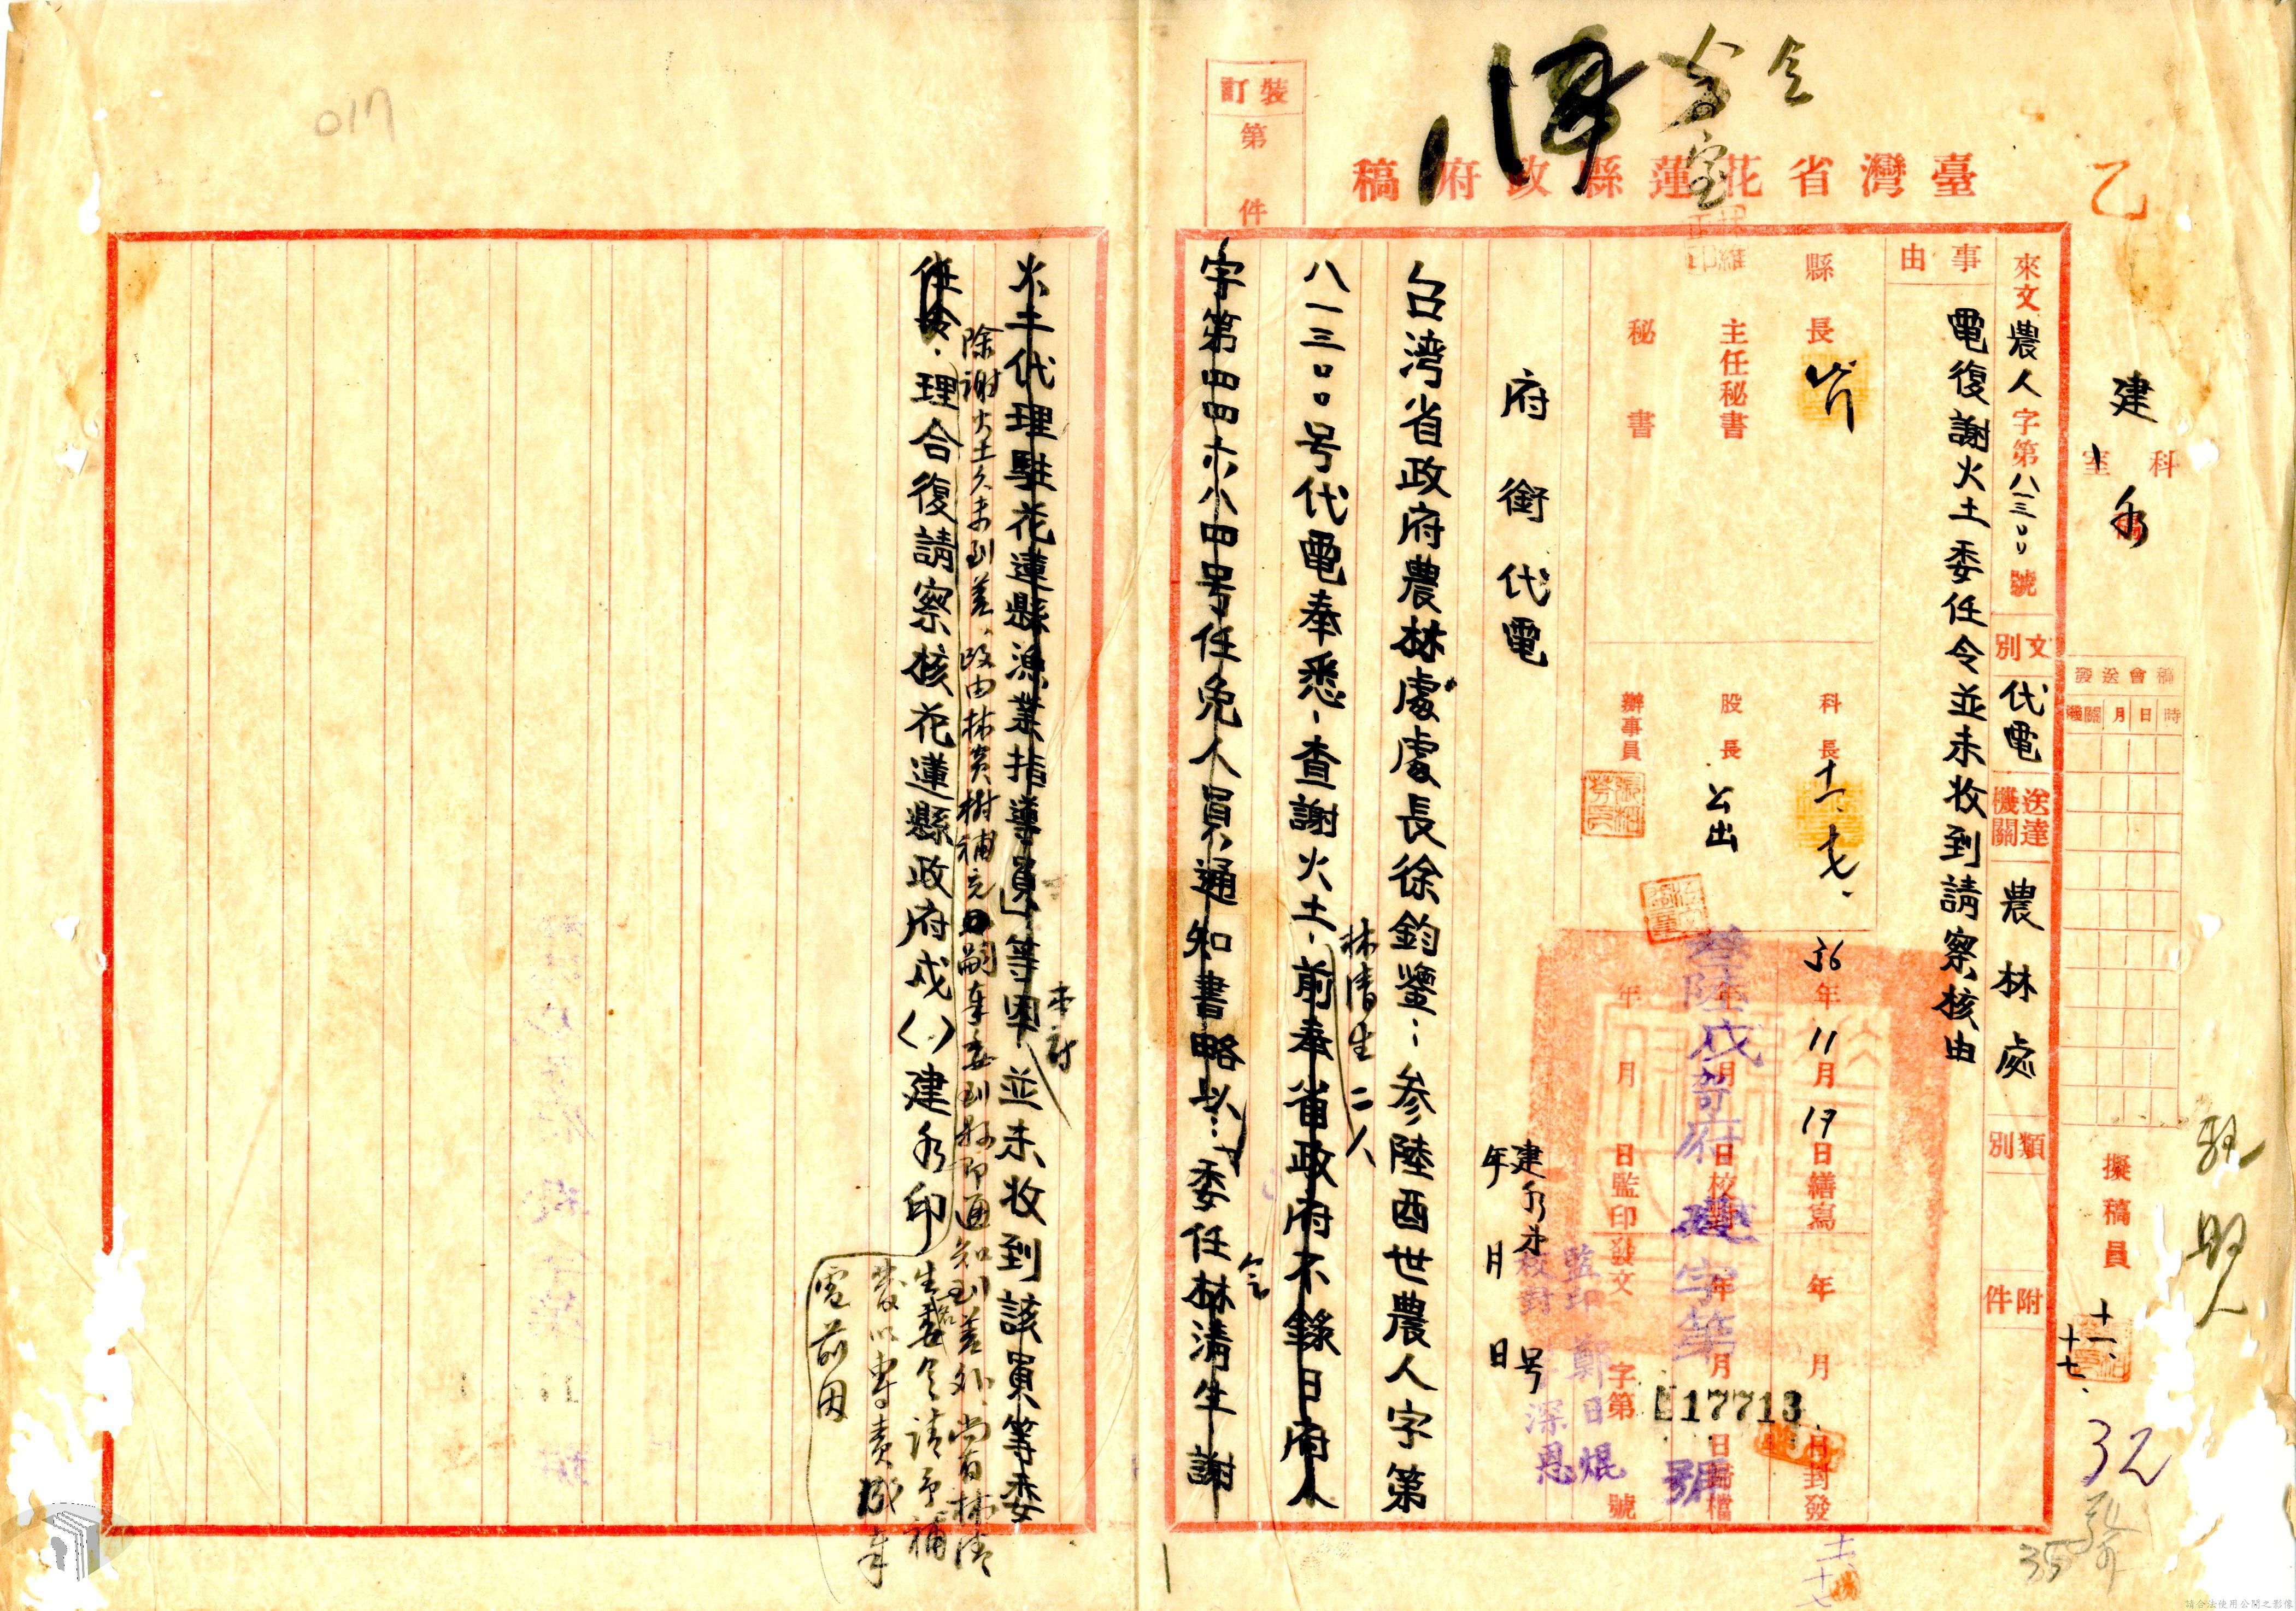 臺灣省花蓮縣政府稿
裝訂
第 件
乙
建
科
室
擬稿員
十一、十七、
稿會送發
時
日
月
機關
來文農人字第八一三〇〇號
文別
代電
送達機關
農林處
類別
附件
事由
電復謝火土委任令並未收到請察核由
縣長
主任秘書
秘書
科長
十一、十七、
股長
公出
辦事員
36年11月17日繕寫
年月日校對
年月日監印
年 月 日封發
年月日歸檔
發文 字第 號
叁陸戌 府建 字第 號
17713
監印 鄭日焜
校對 深恩
府銜代電
年 月 日
台湾省政府農林處處長徐鈞鑒：参陸酉世農人字第
八一三〇〇号代電奉悉、查謝火土、前奉省政府不錄日府人
林清生二人
字第四四六八四号任免人員通知書略以：委任林清生謝
火土代理駐花蓮縣漁業指導員」等因、並未收到該員等委
除謝火土久未到差、改由林炎樹補充
任令、理合復請察核花蓮縣政府戌（）建 印
生委令請予補
發以專責成奉
電前因
017
32
35
請合法使用公開之影像